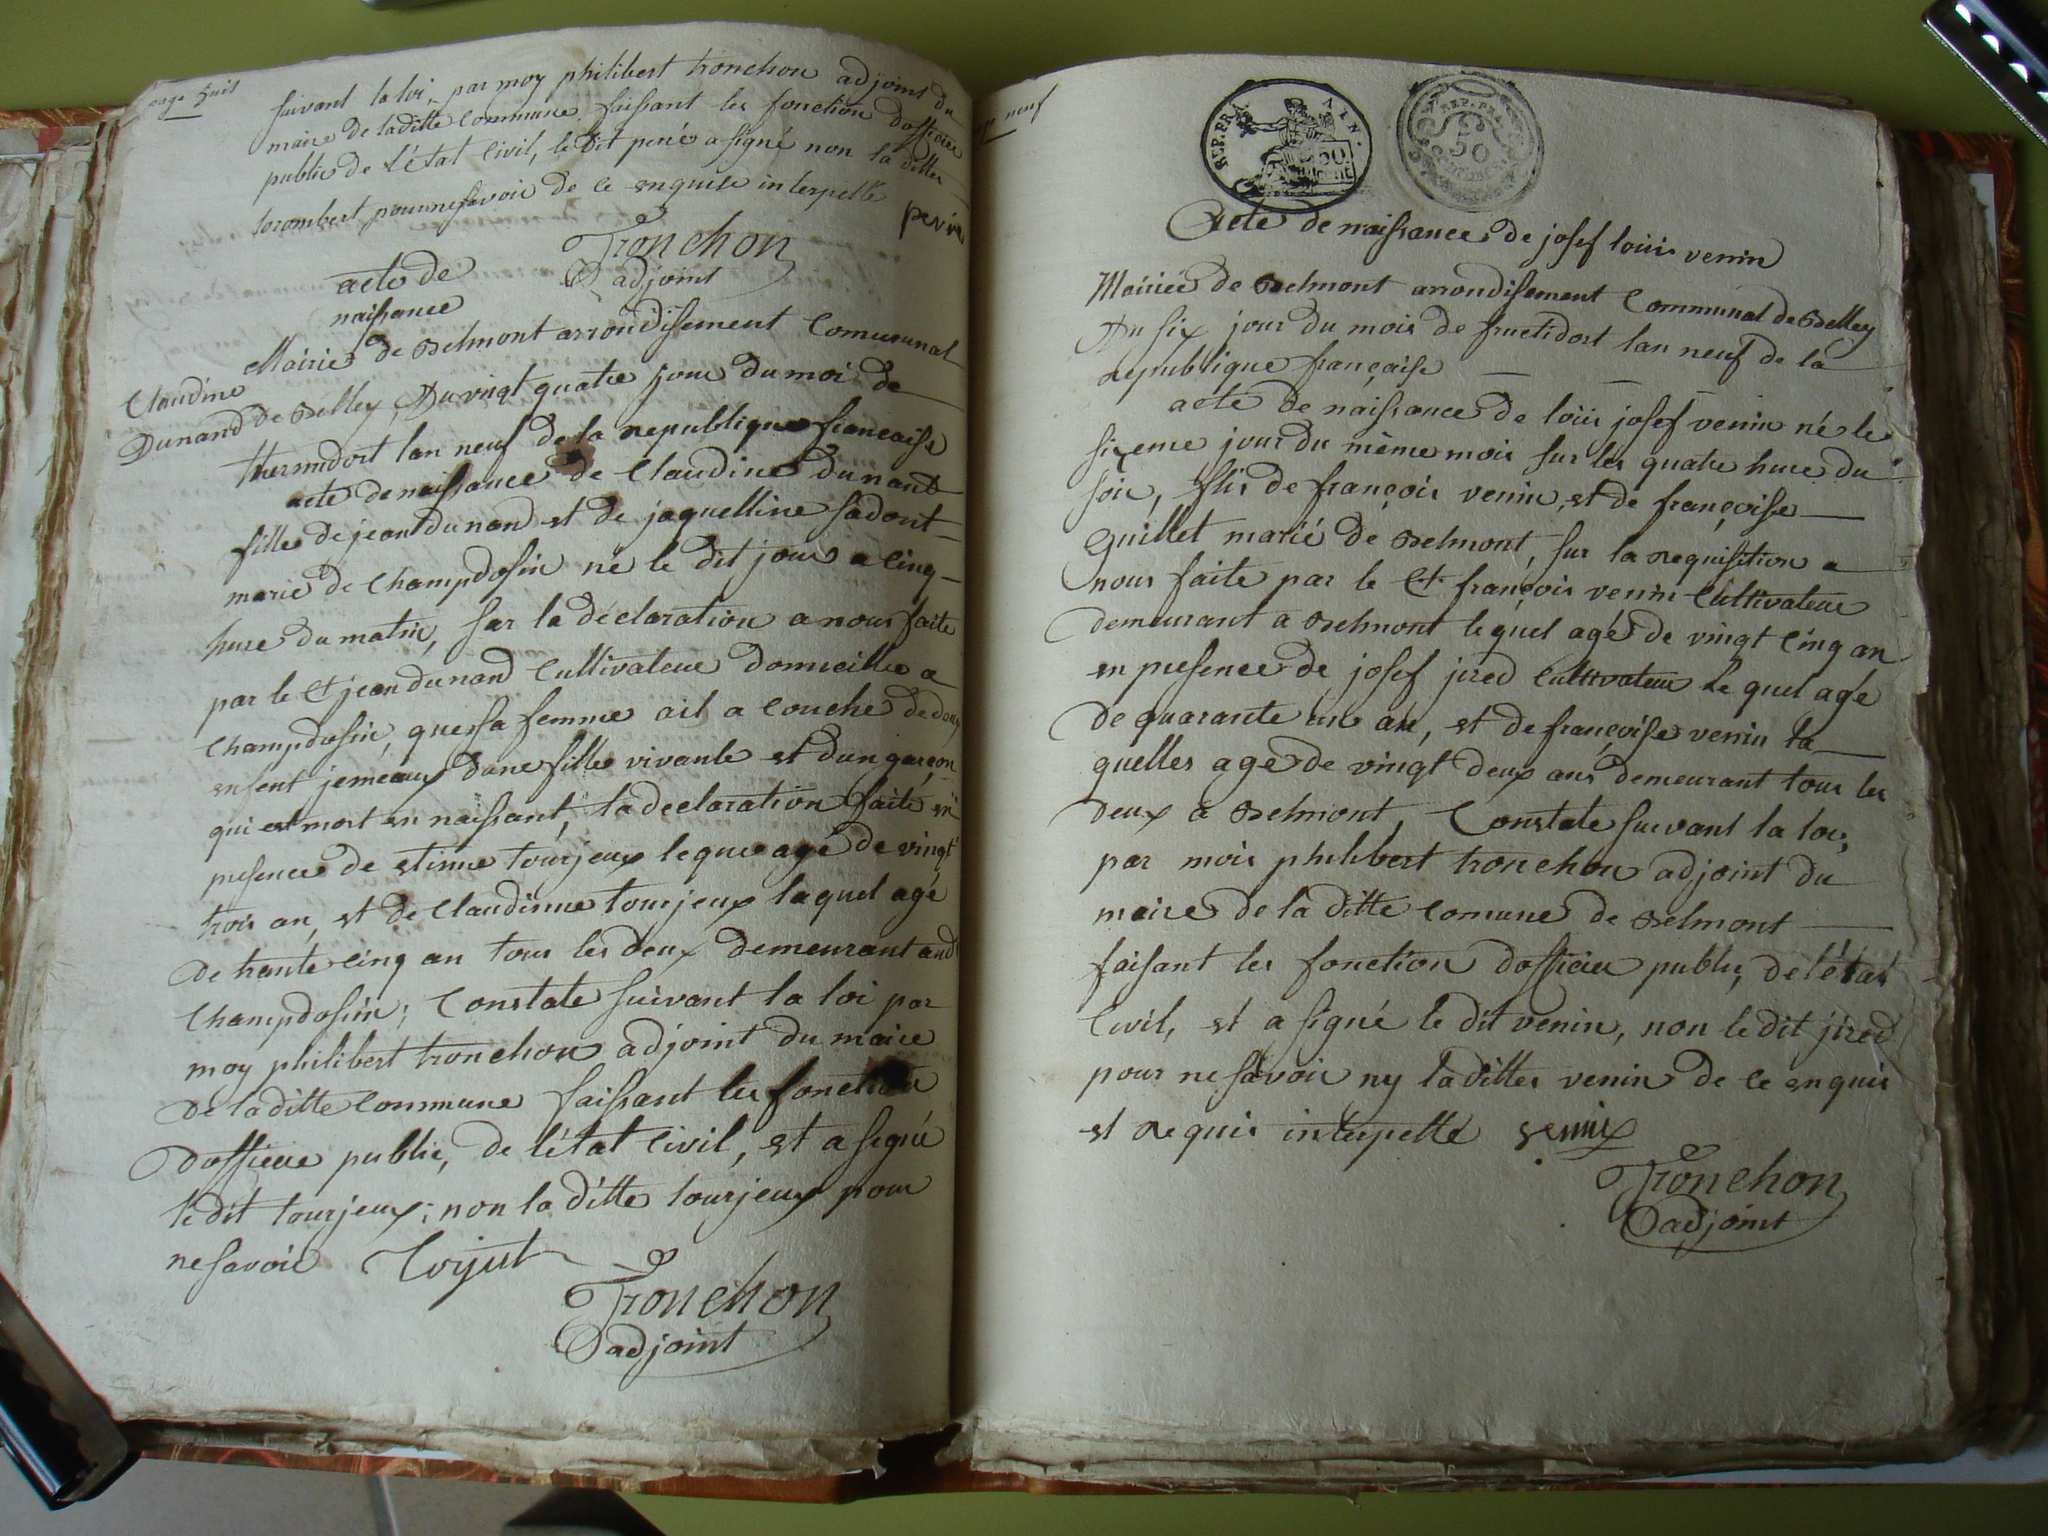 page huit
suivant la loi, par moy philibert tronchon adjoint du
maire de laditte commune faissant les fonction dofficier
public de l'état Civil, le dit a signé non la ditte
trombert pour ne savoir de ce enquise interpellé
Tronchon
adjoint
acte de
naissance
Mairie de Belmont arrondissement Comunnal
Claudine
Dunand
de Belley, Du vingt quatre jour du moi de
thermidort lan neuf de la republique francaise
acte de naissance de Claudine dunand
fille de jean dunand et de jaquelline sadont
marié de Champdosin né le dit jour a cinq
hure du matin, sur la déclaration a nous faite
par le Ct jean dunand Cultivateur domicillie a
Champdosin, que sa femme ait a couché de deux
enfent jemeaux dune fille vivante et dun garçon
qui est mort en naissant, la declaration faite en
presence de etinne tourjeux leque agé de vingt
trois an, et de Claudinne tourjeux laquel agé
de trante cinq an tous les deux demeurant aud
Champdosin; Constate suivant la loi par
moy philibert tronchon adjoint du maire
de laditte commune faissant les fonction
dofficier public, de l'état Civil, et a signé
le dit tourjeux; non la ditte tourjeux pour
ne savoir
Tronchon
adjoint
page neuf
REP. FRA. AIN.
50
REP. FRA.
50
Acte de naissance de josef louis venin
Mairie de Belmont arrondissement Communal de Belley
Du six jour du mois de fructidort lan neuf de la
republique française
acte de naissance de louis josef venin né le
sixeme jour du même mois sur les quatre hure du
soir, fils de françois venin, et de françoise
Guillet marié de Belmont, sur la requisition a
nous faite par le Ct françois venin Cultivateur
demeurant a Belmont lequel agé de vingt cinq an
en presence de josef jired cultivateur le quel agé
de quarante un an, et de françoise venin la
quelles age de vingt deux ans demeurant tous les
deux a Belmont, Constate suivant la loi,
par mois philibert tronchon adjoint du
maire de la ditte comune de Belmont
faisant les fonction dofficier public, de l'état
Civil, et a signé le dit venin, non le dit jired
pour ne savoir ny la dittes venin de ce enquis
et requis interpellé venin
Tronchon
adjoint